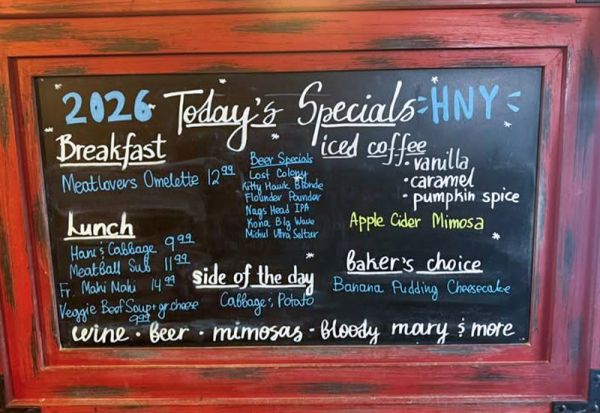 2026 Today's Specials HNY
Breakfast
Meatlovers Omelette 12.99
Lunch
Ham & Cabbage 9.99
Meatball Sub 11.99
Fr. Mahi Mahi 14.99
Veggie Beef Soup + gr. cheese
9.99
Beer Specials
Lost Colony
Kitty Hawk Blonde
Flounder Pounder
Nags Head IPA
Kona Big Wave
Michul Ultra Seltzer
side of the day
Cabbage, Potato
iced coffee
• vanilla
• caramel
• pumpkin spice
Apple Cider Mimosa
baker's choice
Banana Pudding Cheesecake
wine • beer • mimosas • bloody mary & more